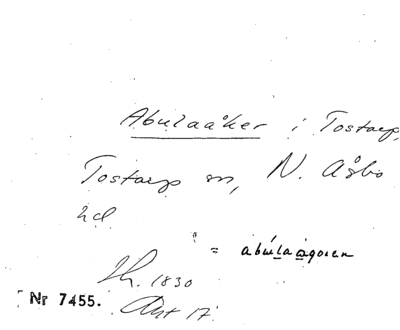 Abulaåker i Tostarp,
Tostarp sn, N. Åsbo
hd
= abulaagoren
1830
Nr 7455. Akt 17.